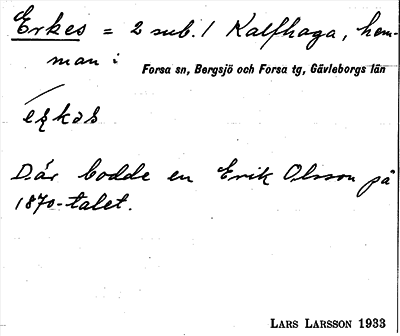 Erkes = 2 sub. / Kalfhaga, hem-
man i
Forsa sn, Bergsjö och Forsa tg, Gävleborgs län
Där bodde en Erik Olsson på
1870-talet.
LARS LARSSON 1933